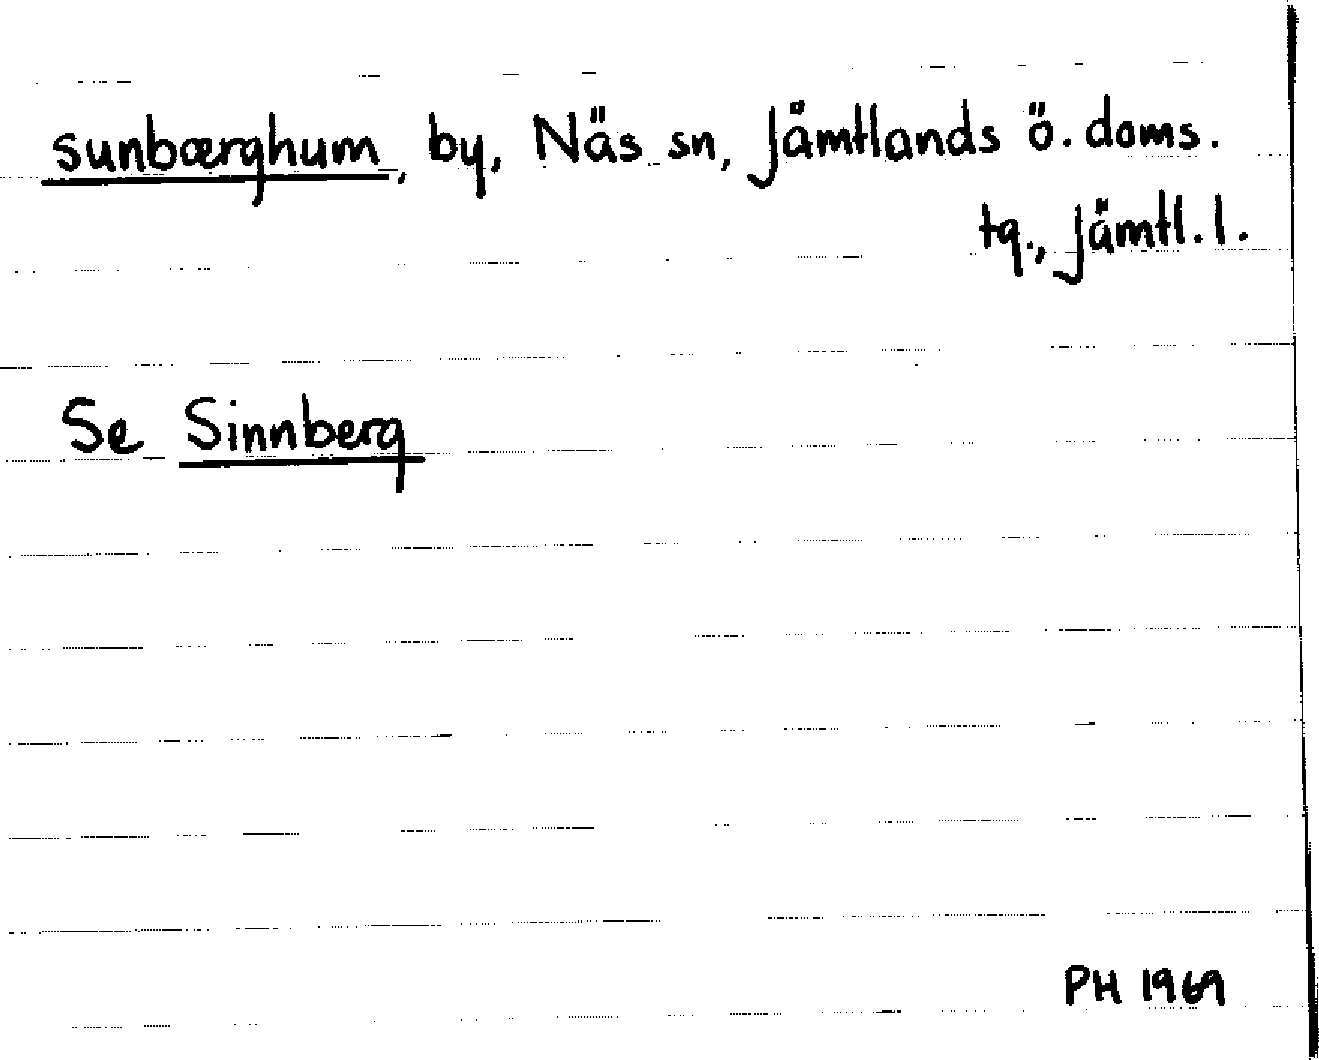 sunbærghum, by, Näs sn, Jämtlands ö. doms.
tg., Jämtl. l.
Se Sinnberg
PH 1969